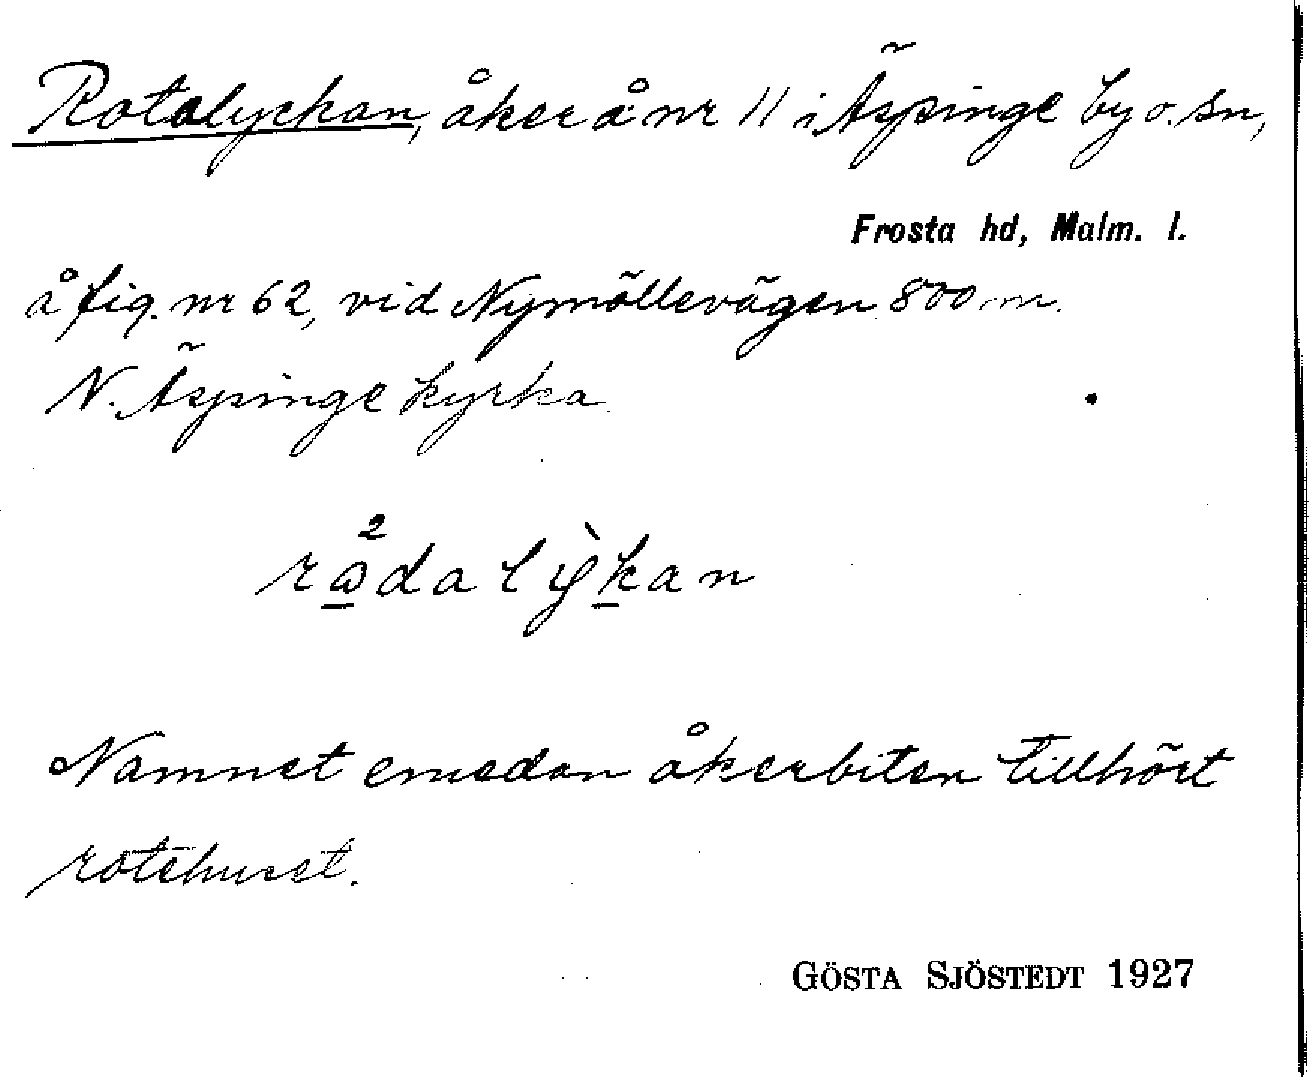 Rotalyckan, åker å nr 11 i Äspinge by o. sn,
Frosta hd, Malm. l.
å fig. nr 62, vid Nymöllevägen 800 m.
N. Äspinge kyrka.
rådalỳkan
Namnet emedan åkerbiten tillhört
rotehuset.
GÖSTA SJÖSTEDT 1927